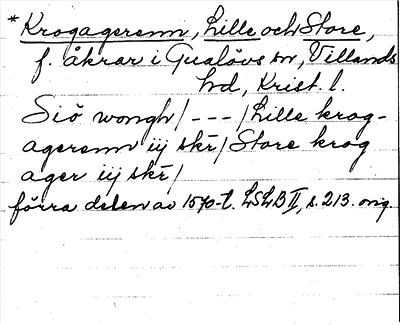 *Krogagerenn, Lille och Store,
f. åkrar i Gualövs sn, Villands
hd, Krist. l.
Siö wongh/ - - - /Lille krog-
agerenn iij skr/ Store krog
ager iij skr/
förra delen av 1570-t. LSLB II, s. 213. orig.